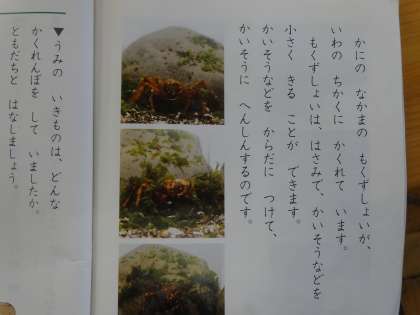 かにの なかまの もくずしょいが、
いわの ちかくに かくれて います。
もくずしょいは、はさみで、かいそうなどを
小さく きる ことが できます。
かいそうなどを からだに つけて、
かいそうに へんしんするのです。
▼うみの いきものは、どんな
かくれんぼを して いましたか。
ともだちと はなしましょう。